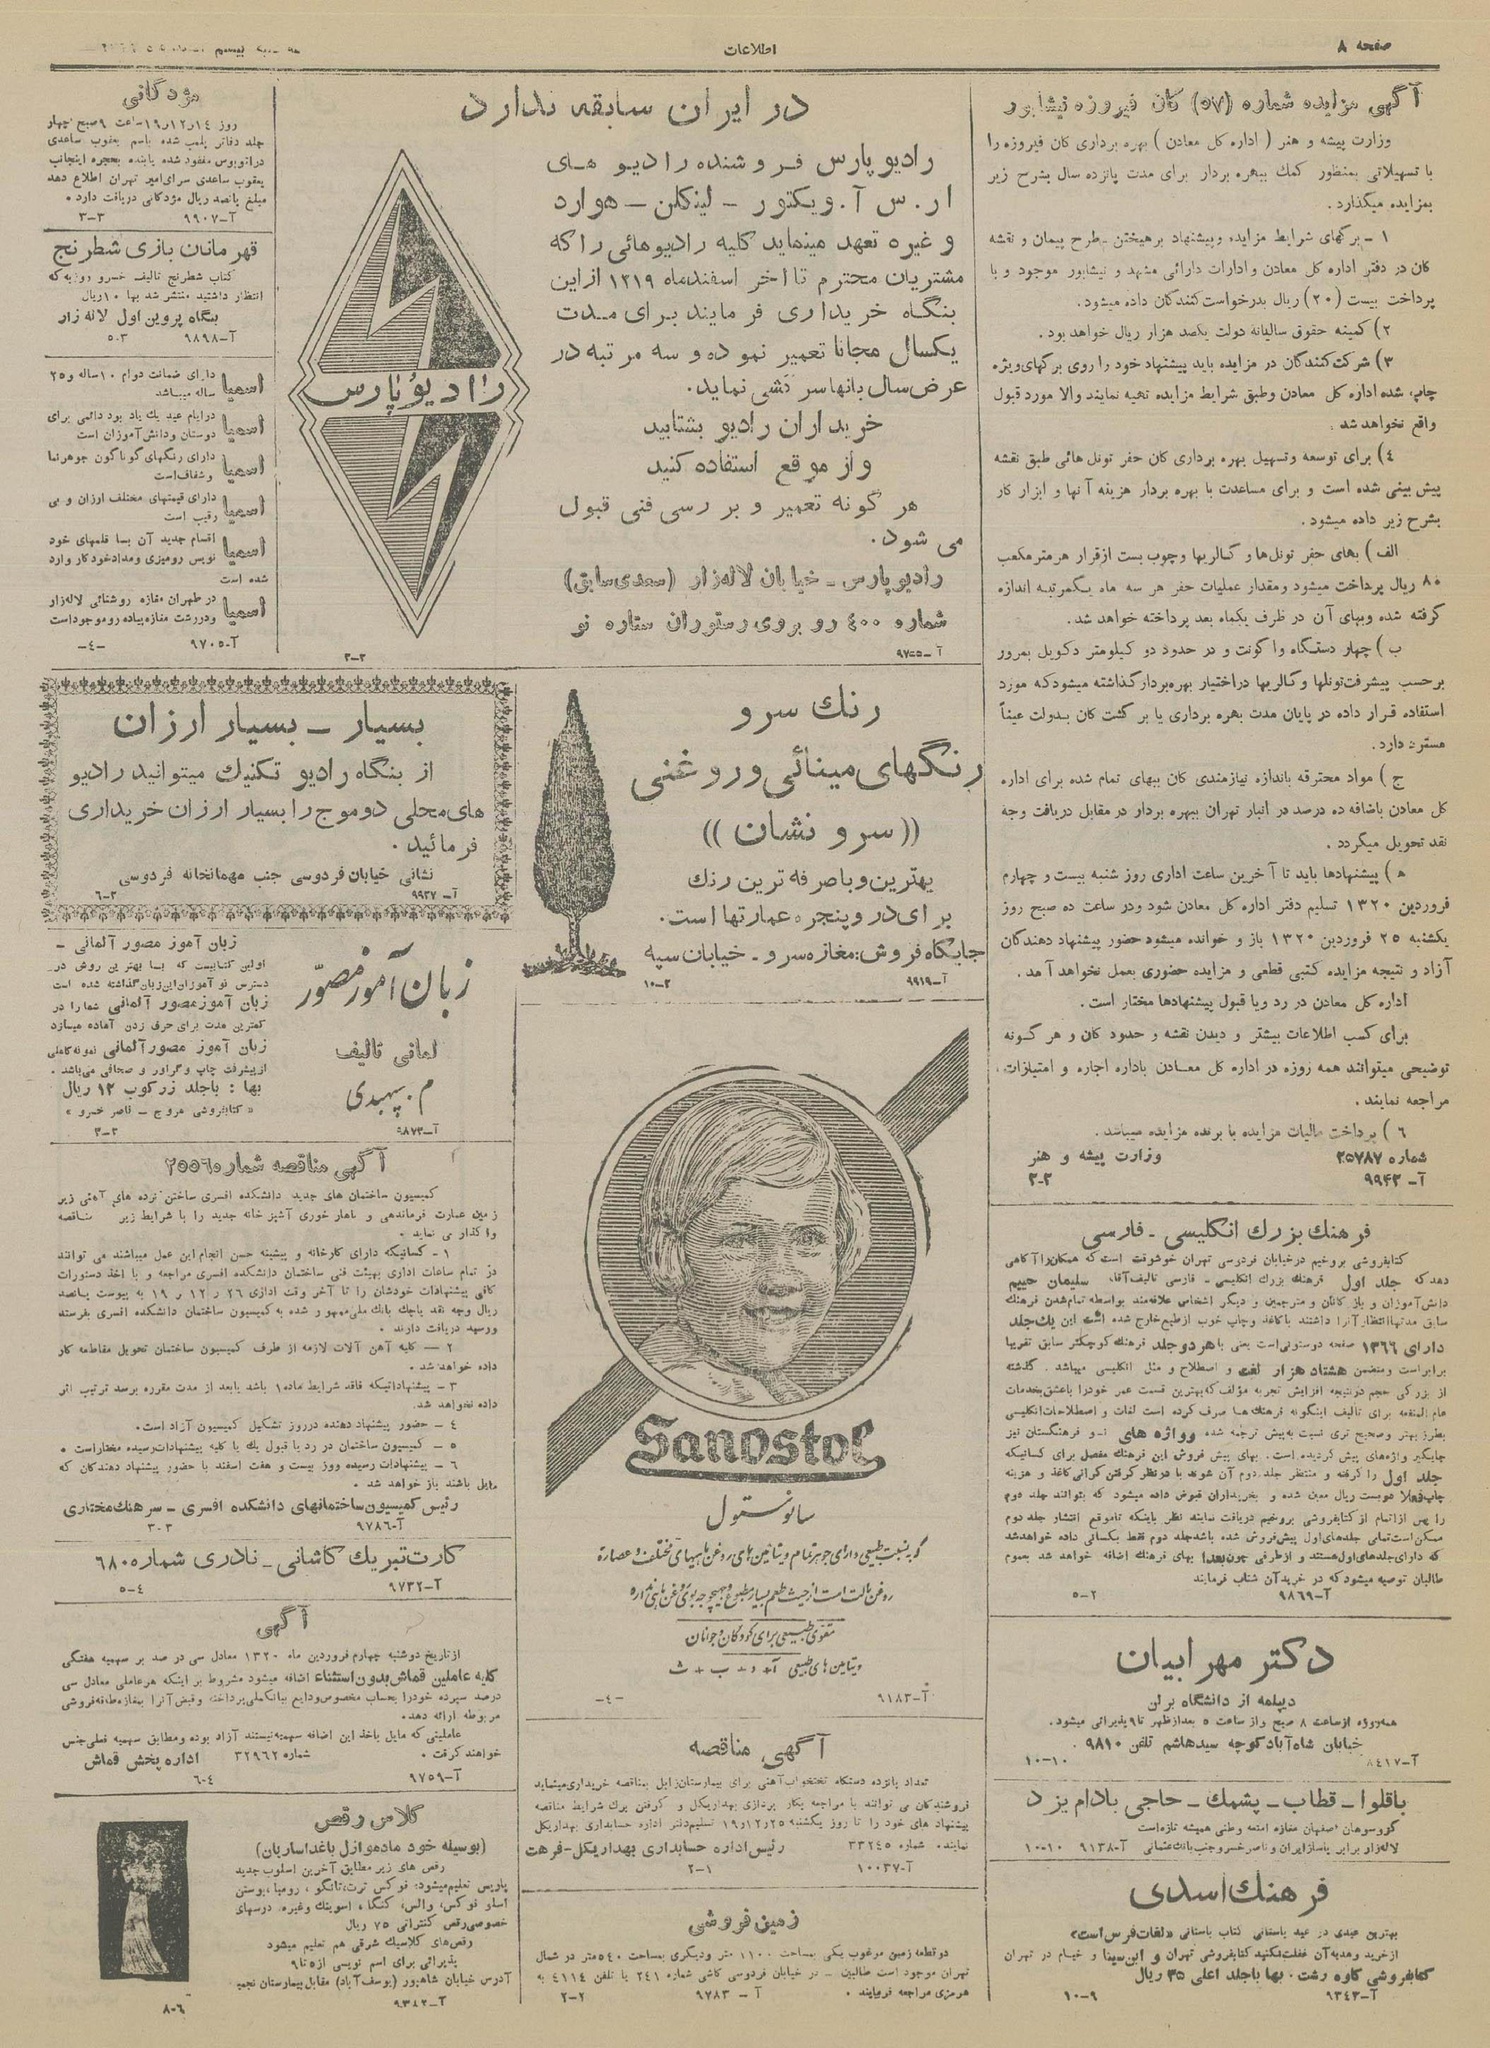 صفحه ۸
اطلاعات
آگهی مزایده شماره (۵۷) کان فیروزه نیشابور
وزارت پیشه و هنر ( اداره کل معادن ) بهره برداری کان فیروزه را
با تسهیلاتی بمنظور کمک ببهره بردار برای مدت پانزده سال بشرح زیر
بمزایده میگذارد .
۱ - برگهای شرایط مزایده وپیشنهاد برهیختن طرح پیمان و نقشه
کان در دفتر اداره کل معادن و ادارات دارائی مشهد و نیشابور موجود و با
پرداخت بیست (۲۰) ریال بدرخواست کنندگان داده میشود.
۲) کمینه حقوق سالیانه دولت یکصد هزار ریال خواهد بود .
۳) شرکت کنندگان در مزایده باید پیشنهاد خود را روی برگهای ویژه
چاپ شده اداره کل معادن وطبق شرایط مزایده تهیه نمایند والا مورد قبول
واقع نخواهد شد .
٤) برای توسعه وتسهیل بهره برداری کان حفر تونل هائی طبق نقشه
پیش بینی شده است و برای مساعدت با بهره بردار هزینه آنها و ابزار کار
بشرح زیر داده میشود .
الف ) بهای حفر تونل ها و گالریها وچوب بست ازقرار هرمترمکعب
۸۰ ریال پرداخت میشود ومقدار عملیات حفر هر سه ماه یکمرتبه اندازه
گرفته شده وبهای آن در ظرف یکماه بعد پرداخته خواهد شد.
ب ) چهار دستگاه واگونت و در حدود دو کیلومتر دکویل بمرور
برحسب پیشرفت تونلها وگالریها دراختیار بهره بردار گذاشته میشود که مورد
استفاده قرار داده در پایان مدت بهره برداری یا بر گشت کان بدولت عیناً
مسترد دارد .
ج ) مواد محترقه باندازه نیازمندی کان ببهای تمام شده برای اداره
کل معادن باضافه ده درصد در انبار تهران ببهره بردار در مقابل دریافت وجه
نقد تحویل میگردد .
ه ) پیشنهادها باید تا آخرین ساعت اداری روز شنبه بیست و چهارم
فروردین ۱۳۲۰ تسلیم دفتر اداره کل معادن شود ودر ساعت ده صبح روز
یکشنبه ۲۵ فروردین ۱۳۲۰ باز و خوانده میشود حضور پیشنهاد دهندگان
آزاد و نتیجه مزایده کتبی قطعی و مزایده حضوری بعمل نخواهد آمد .
اداره کل معادن در رد ویا قبول پیشنهادها مختار است .
برای کسب اطلاعات بیشتر و دیدن نقشه و حدود کان و هر گونه
توضیحی میتوانند همه روزه در اداره کل معادن باداره اجاره و امتیازات
مراجعه نمایند .
٦ ) پرداخت مالیات مزایده با برنده مزایده میباشد .
شماره ۲۵۷۸۷ وزارت پیشه و هنر
آ- ۹۹۴۳ ۲-۲
فرهنگ بزرگ انگلیسی - فارسی
کتابفروشی بروخیم درخیابان فردوسی تهران خوشوقت است که همکان را آگاهی
دهد که جلد اول فرهنگ بزرگ انگلیسی - فارسی تالیف آقای سلیمان حییم
دانش آموزان و بازرگانان و مترجمین و دیگر اشخاص علاقه مند بواسطه تمام شدن فرهنگ
سابق مدتها انتظار آنرا داشتند باکاغذ وچاپ خوب ازطبع خارج شده است این یک جلد
دارای ۱۳۶۶ صفحه دوستونی است یعنی با هردو جلد فرهنگ کوچکتر سابق تقریبا
برابراست ومتضمن هشتاد هزار لغت و اصطلاح و مثل انگلیسی میباشد . گذشته
از بزرگی حجم درنتیجه افزایش تجربه مؤلف که بهترین قسمت عمر خودرا باعشق بخدمات
عام المنفعه برای تالیف اینگونه فرهنگ ها صرف کرده است لغات و اصطلاحات انگلیسی
بطرز بهتر وصحیح تری نسبت به پیش ترجمه شده وواژه های نو فرهنگستان نیز
جایگیر واژه های پیش گردیده است . بهای پیش فروش این فرهنگ مفصل برای کسانیکه
جلد اول را گرفته و منتظر جلد دوم آن شوند با درنظر گرفتن گرانی کاغذ و هزینه
چاپ فعلا دویست ریال معین شده و بخریداران قبوض داده میشود که بتوانند جلد دوم
را پس از اتمام از کتابفروشی بروخیم دریافت نمایند نظر باینکه تاموقع انتشار جلد دوم
ممکن است تمامی جلدهای اول پیش فروش شده باشد جلد دوم فقط بکسانی داده خواهد شد
که دارای جلدهای اول هستند و از طرفی چون بعدا بهای فرهنگ اضافه خواهد شد بعموم
طالبان توصیه میشود که در خرید آن شتاب فرمایند
آ-۹۸۶۹ ۵-۲
دکتر مهرابیان
دیپلمه از دانشگاه برلن
همه روزه ازساعت ۸ صبح و از ساعت ۵ بعدازظهر تا ۹ پذیرائی میشود.
خیابان شاه آباد کوچه سیدهاشم تلفن ۹۸۱۰ .
آ-۸۴۱۷ ۱۰-۱۰
باقلوا - قطاب - پشمک - حاجی بادام یزد
گزوسوهان اصفهان مغازه امتعه وطنی همیشه تازه است
لاله زار برابر پاساژ ایران و ناصرخسرو جنب بانک عثمانی آ-۹۱۳۸ ۱۰-۱۰
فرهنگ اسدی
بهترین عیدی در عید باستانی کتاب باستانی «لغات فرس است»
ازخرید وهدیه آن غفلت نکنید کتابفروشی تهران و ابن سینا و خیام در تهران
کتابفروشی کاوه رشت . بها باجلد اعلی ۳۵ ریال
آ-۹۳۴۳ ۱۰-۹
در ایران سابقه ندارد
رادیو پارس فروشنده رادیو های
ار . س آ . ویکتور - لینکلن - هوارد
و غیره تعهد مینماید کلیه رادیوهائی را که
مشتریان محترم تا اخر اسفندماه ۱۳۱۹ از این
بنگاه خریداری فرمایند برای مدت
یکسال مجانا تعمیر نموده و سه مرتبه در
عرض سال بانها سرکشی نماید .
خریداران رادیو بشتابید
و از موقع استفاده کنید
هر گونه تعمیر و بررسی فنی قبول
می شود .
رادیو پارس - خیابان لاله زار (سعدی سابق)
شماره ۴۰۰ رو بروی رستوران ستاره نو
رادیو پارس
۳-۳
رنگ سرو
رنگهای مینائی و روغنی
((سرو نشان))
بهترین و باصرفه ترین رنگ
برای در و پنجره عمارتها است .
جایگاه فروش : مغازه سرو - خیابان سپه
آ-۹۹۱۹ ۱۰-۲
Sanostol
سانوستول
که به نسبت طبیعی دارای جوهر تمام ویتامین های روغن ماهیهای مختلف و عصاره
روغن مالت است از حیث طعم بسیار مطبوع و بهیچوجه بوی روغن ماهی ندارد
مقوی طبیعی برای کودکان و جوانان
ویتامین های طبیعی آ + د + ب + ث
آ-۹۱۸۳ -٤-
آگهی مناقصه
تعداد پانزده دستگاه تختخواب آهنی برای بیمارستان زابل بمناقصه خریداری مینماید
فروشندگان می توانند با مراجعه بکار پردازی بهداریکل و گرفتن برگ شرایط مناقصه
پیشنهاد های خود را تا روز یکشنبه ۱۹/۱۲/۲۵ تسلیم دفتر اداره حسابداری بهداریکل
نمایند . شماره ۳۳۲۴۵ رئیس اداره حسابداری بهداریکل - فرهت
آ-۱۰۰۳۷ ۲-۱
زمین فروشی
دوقطعه زمین مرغوب یکی بمساحت ۱۱۰۰ متر ودیگری بمساحت ۵۴۰ متر در شمال
تهران موجود است طالبین - در خیابان فردوسی کاشی شماره ۲۴۱ با تلفن ۴۱۱۴ به
هرمزی مراجعه فرمایند . آ - ۹۷۸۳ ۲-۲
مژدگانی
روز ۱۹/۱۲/۱۴ ساعت ۹ صبح چهار
جلد دفاتر پلمب شده باسم یعقوب ساعدی
دراتوبوس مفقود شده یابنده بحجره اینجانب
یعقوب ساعدی سرای امیر تهران اطلاع دهد
مبلغ پانصد ریال مژدگانی دریافت دارد .
آ-۹۹۰۷ ۳-۳
قهرمانان بازی شطرنج
کتاب شطرنج تالیف خسرو روزبه که
انتظار داشتید منتشر شد بها ۱۰ ریال
بنگاه پروین اول لاله زار
آ-۹۸۹۸ ۵-۳
اسمیا دارای ضمانت دوام ۱۰ ساله و ۲۵
ساله میباشد
اسمیا درایام عید یک یاد بود دائمی برای
دوستان ودانش آموزان است
اسمیا دارای رنگهای گوناگون جوهرنما
و شفاف است
اسمیا دارای قیمتهای مختلف ارزان و بی
رقیب است
اسمیا اقسام جدید آن بسا قلمهای خود
نویس رومیزی ومداد خودکار وارد
شده است
اسمیا در طهران مغازه روشنائی لاله زار
ودررشت مغازه پیاده رو موجود است
آ-۹۷۰۵ -٤-
بسیار - بسیار ارزان
از بنگاه رادیو تکنیک میتوانید رادیو
های محلی دو موج را بسیار ارزان خریداری
فرمائید .
نشانی خیابان فردوسی جنب مهمانخانه فردوسی
آ-۹۹۳۷ ۶-۳
زبان آموز مصوّر
لمانی تالیف
م . سپهبدی
آ-۹۸۷۳
زبان آموز مصور آلمانی -
اولین کتابیست که بسا بهترین روش در
دسترس نو آموزان این زبان گذاشته شده است
زبان آموز مصور آلمانی شما را در
کمترین مدت برای حرف زدن آماده میسازد
زبان آموز مصور آلمانی نمونه کاملی
از پیشرفت چاپ و گراور و صحافی می باشد .
بها : باجلد زرکوب ۱۲ ریال
« کتابفروشی مروج - ناصر خسرو »
۳-۲
آگهی مناقصه شماره ۲۵۵۶۰
کمیسیون ساختمان های جدید دانشکده افسری ساختن نرده های آهنی زیر
زمین عمارت فرماندهی و ناهار خوری آشپز خانه جدید را با شرایط زیر مناقصه
واگذار می نماید .
۱ - کسانیکه دارای کارخانه و پیشینه حسن انجام این عمل میباشند می توانند
در تمام ساعات اداری بهیئت فنی ساختمان دانشکده افسری مراجعه و با اخذ دستورات
کافی پیشنهادات خودشان را تا آخر وقت اداری ۲۶ ر ۱۲ ر ۱۹ به پیوست پانصد
ریال وجه نقد یاچک بانک ملی ممهور شده به کمیسیون ساختمان دانشکده افسری بفرستد
ورسید دریافت دارند .
۲ - کلیه آهن آلات لازمه از طرف کمیسیون ساختمان تحویل مقاطعه کار
داده خواهد شد .
۳ - پیشنهاداتیکه فاقد شرایط ماده ۱ باشد یابعد از مدت مقرره برسد ترتیب اثر
داده نخواهد شد.
٤ - حضور پیشنهاد دهنده درروز تشکیل کمیسیون آزاد است.
۵ - کمیسیون ساختمان در رد یا قبول یک یا کلیه پیشنهادات رسیده مختار است .
٦ - پیشنهادات رسیده روز بیست و هفت اسفند با حضور پیشنهاد دهندگان که
مایل باشند باز خواهد شد .
رئیس کمیسیون ساختمانهای دانشکده افسری - سرهنگ مختاری
آ-۹۷۸۶ ۳-۳
کارت تبریک کاشانی - نادری شماره ۶۸۰
آ-۹۷۳۲ ۵-۴
آگهی
از تاریخ دوشنبه چهارم فروردین ماه ۱۳۲۰ معادل سی در صد بر سهمیه هفتگی
کلیه عاملین قماش بدون استثناء اضافه میشود مشروط بر اینکه هرعاملی معادل سی
درصد سپرده خودرا بحساب مخصوص ودایع ببانک ملی پرداخته وقبض آنرا بمغازه عمده فروشی
مربوطه ارائه دهد .
عاملینی که مایل باخذ این اضافه سهمیه نیستند آزاد بوده ومطابق سهمیه فعلی جنس
خواهند گرفت . شماره ۳۲۹۶۲ اداره پخش قماش
آ-۹۷۵۹ ۶-۴
کلاس رقص
(بوسیله خود مادموازل باغداساریان)
رقص های زیر مطابق آخرین اسلوب جدید
پاریس تعلیم میشود: فوکس ترت، تانگو ، رومبا ، بوستن
اسلو فوکس، والس، کنگا ، اسوینگ وغیره . درسهای
خصوصی رقص کنتراتی ۷۵ ریال
رقص های کلاسیک شرقی هم تعلیم میشود
پذیرائی برای اسم نویسی از ۵ تا ۹
آدرس خیابان شاهپور (یوسف آباد) مقابل بیمارستان نجمیه
آ-۹۳۸۲ ۸-۶